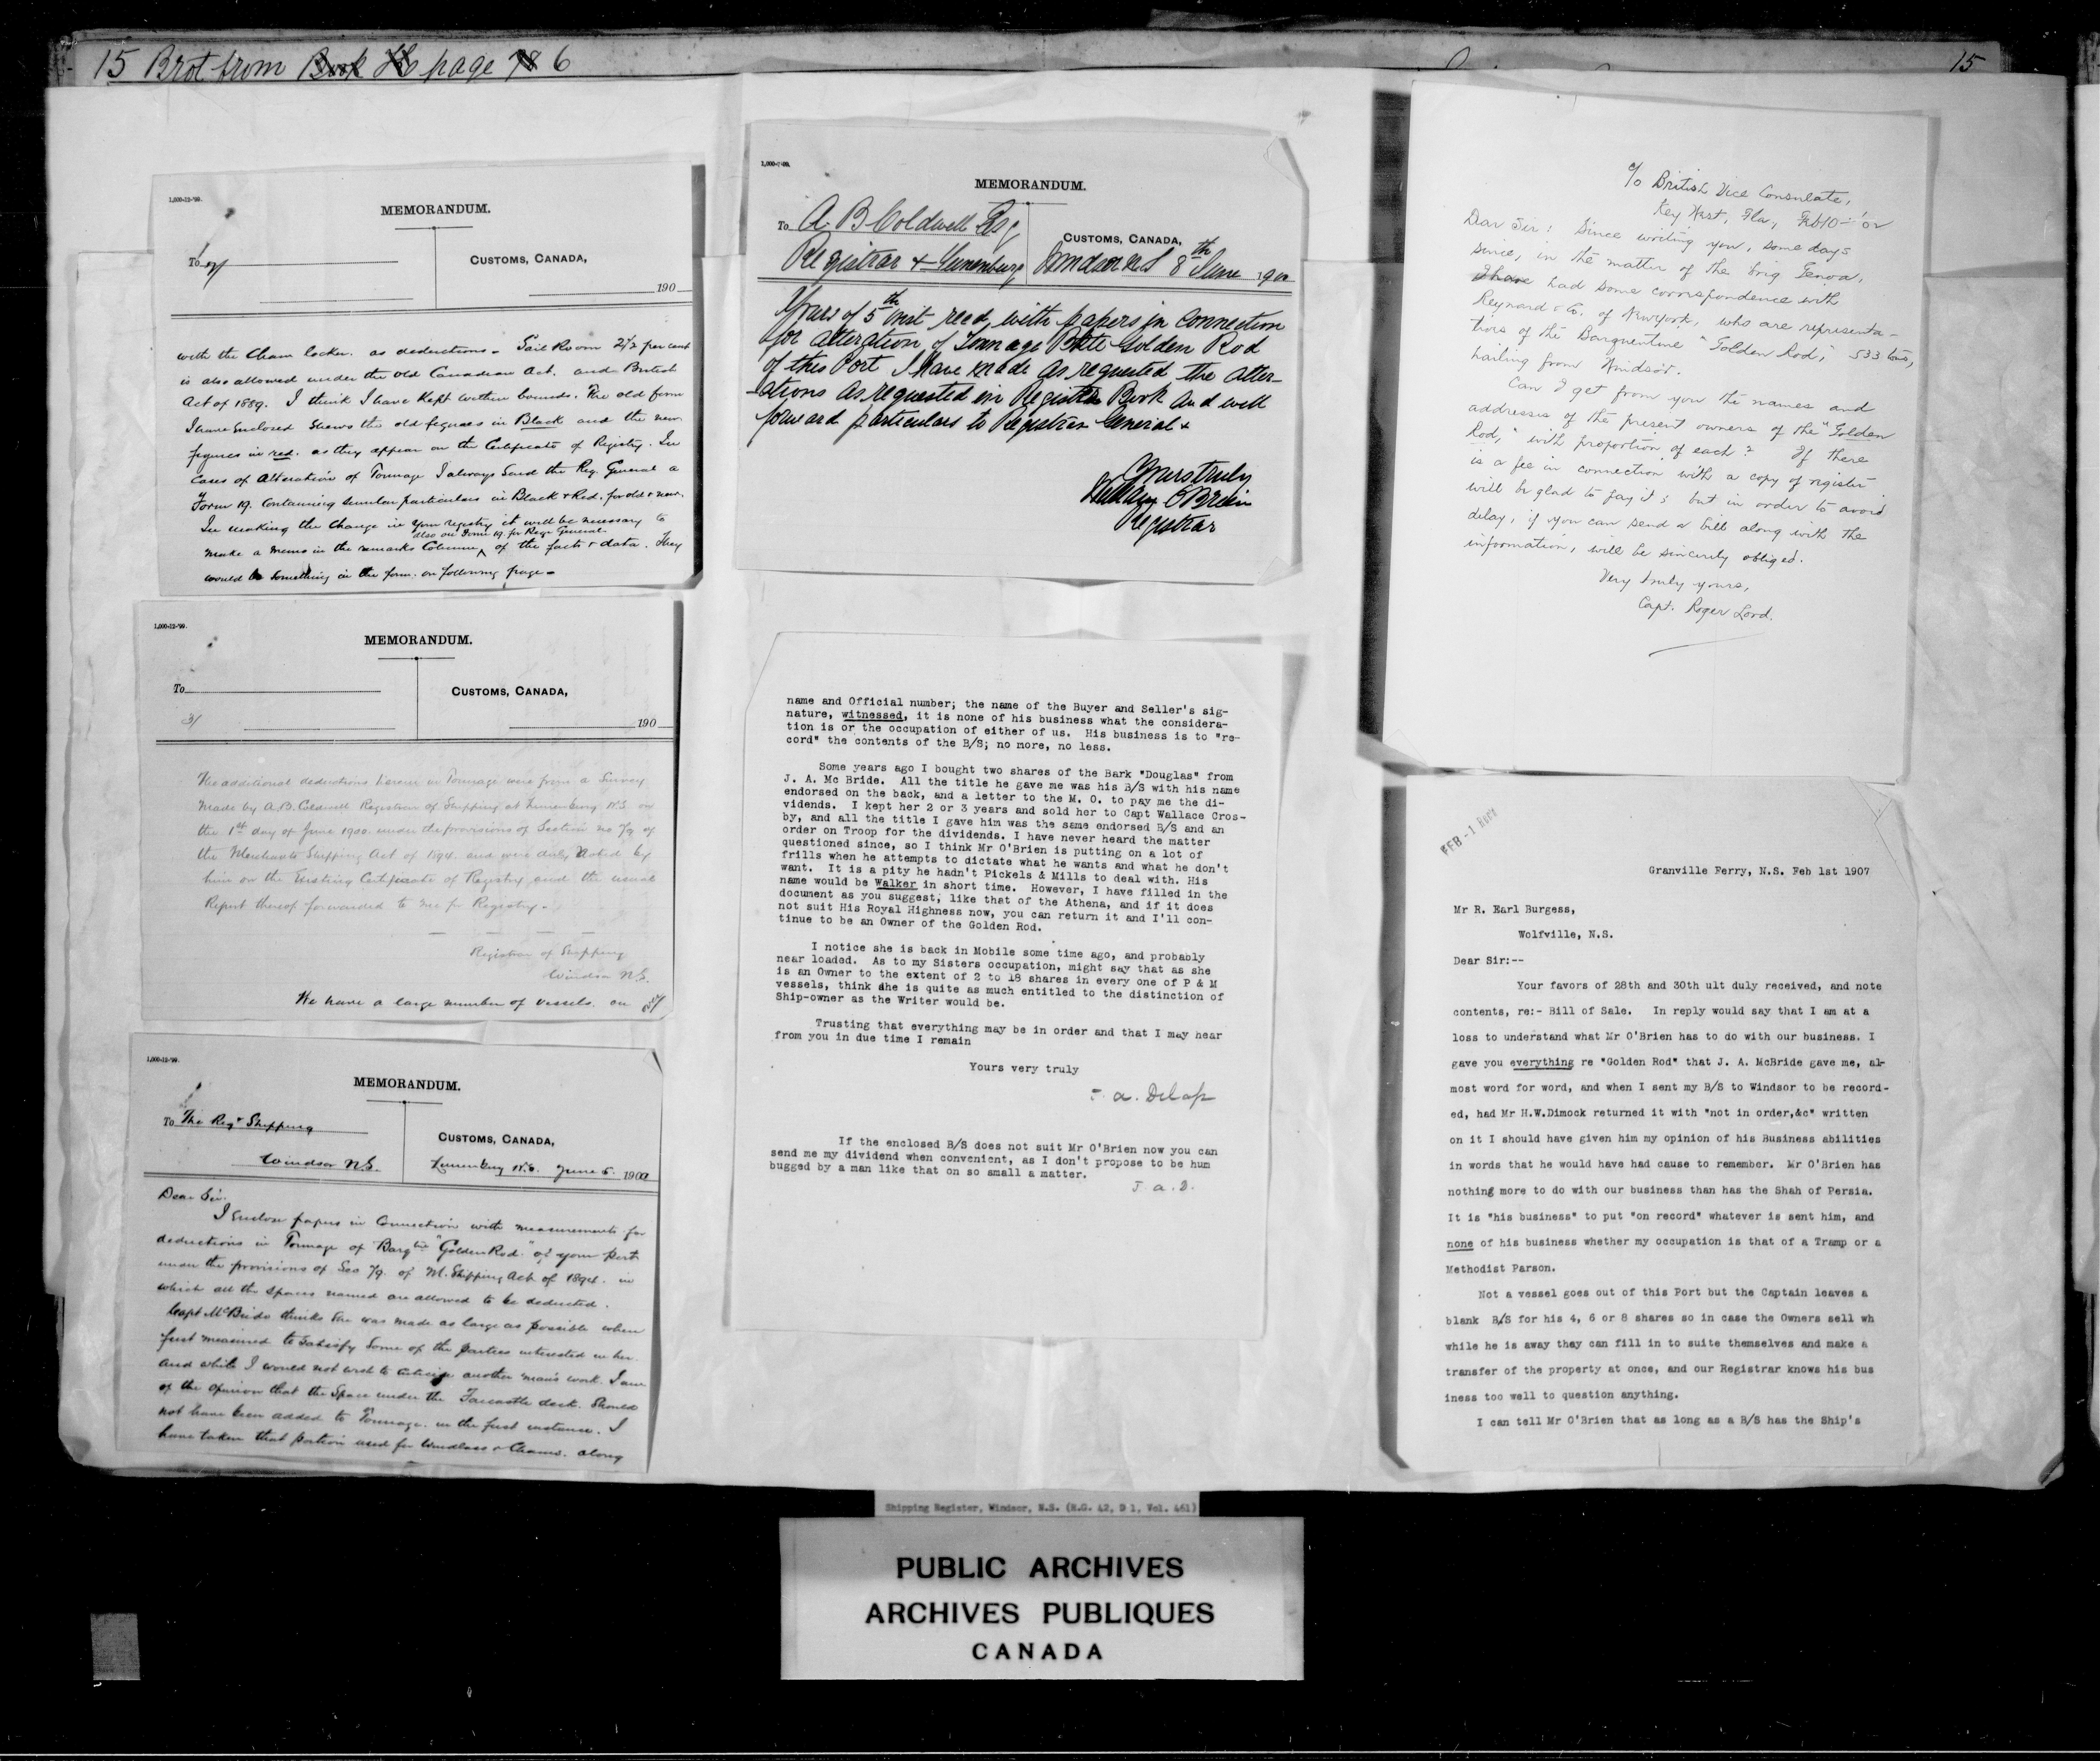 15 Brot from Book page 6
15
1,000-12-'99.
MEMORANDUM.
To
2/
CUSTOMS, CANADA,
190
with the Chain locker. as deductions. Sail Room 2½ per cent
is also allowed under the old Canadian Act. and British
Act of 1889. I think I have Kept within bounds. The old form
I have Enclosed Shews the old fegures in Black and the new
figures in red. as they appear on the Certificate of Registry. In
Cases of Alteration of Tonnage I always Send the Reg. General a
Form 19. Containing similar particulars in Black & Red. for old & new.
In making the Change in your registry it will be necessary to
also on Form 19. for Reg. General.
make a memo in the remarks Column, of the facts & data. They
would be Something in the form. on following page -
1,000-12-'99.
MEMORANDUM.
To
3/
CUSTOMS, CANADA,
190
The additional deductions herein in Tonnage were from a Survey
Made by A.B. Coldwell Registrar of Shipping at Lunenburg N.S. on
the 1st day of June 1900. under the provisions of Section no 79 of
the Merchants Shipping Act of 1894. and were duly Noted by
him on the Existing Certificate of Registry and the usual
Report thereof forwarded to me for Registry.-
Registrar of Shipping
Windsor N.S.
We have a large number of vessels. on
1,000-12-'99.
MEMORANDUM.
To The Regr Shipping
Windsor N.S.
CUSTOMS, CANADA,
Lunenburg N.S. June 5. 1900
Dear Sir.
I Enclose papers in Connection with measurements for
deductions in Tonnage of Barqtne "Golden Rod." of your port
under the provisions of Sec 79. of M. Shipping Act of 1894. in
which all the spaces named are allowed to be deducted.
Capt McBride thinks She was made as large as possible when
first measured to Satisfy Some of the parties interested in her.
and while I would not wish to criticise another man's work. I am
of the Opinion that the Space under the Forecastle deck. Should
not have been added to Tonnage. in the first instance. I
have taken that portion used for Windlass & Chains. along
1,000-7-'99.
MEMORANDUM.
To A. B Coldwell Esq
Registrar Lunenburg
CUSTOMS, CANADA,
Windsor N.S 8th June 1900
Yours of 5th inst recd, with papers in Connection
for alteration of Tonnage Golden Rod
of this Port I have made as requested the alter-
-ations as requested in Register Book and will
forward particulars to Registrar General
Yours truly
O'Brien
Registrar
name and Official number; the name of the Buyer and Seller's sig-
nature, witnessed, it is none of his business what the considera-
tion is or the occupation of either of us. His business is to "re-
cord" the contents of the B/S; no more, no less.
Some years ago I bought two shares of the Bark "Douglas" from
J. A. Mc Bride. All the title he gave me was his B/S with his name
endorsed on the back, and a letter to the M. O. to pay me the di-
vidends. I kept her 2 or 3 years and sold her to Capt Wallace Cros-
by, and all the title I gave him was the same endorsed B/S and an
order on Troop for the dividends. I have never heard the matter
questioned since, so I think Mr O'Brien is putting on a lot of
frills when he attempts to dictate what he wants and what he don't
want. It is a pity he hadn't Pickels & Mills to deal with. His
name would be Walker in short time. However, I have filled in the
document as you suggest, like that of the Athena, and if it does
not suit His Royal Highness now, you can return it and I'll con-
tinue to be an Owner of the Golden Rod.
I notice she is back in Mobile some time ago, and probably
near loaded. As to my Sisters occupation, might say that as she
is an Owner to the extent of 2 to 18 shares in every one of P & M
vessels, think she is quite as much entitled to the distinction of
Ship-owner as the Writer would be.
Trusting that everything may be in order and that I may hear
from you in due time I remain
Yours very truly
a. Delap
If the enclosed B/S does not suit Mr O'Brien now you can
send me my dividend when convenient, as I don't propose to be hum
bugged by a man like that on so small a matter.
J. a. D.
c/o British Vice Consulate,
Key West, Fla, Feb 10
Dear Sir: Since writing you, some days
since, in the matter of the brig Genoa,
I have had some correspondence with
Reynard & Co. of New York, who are representa-
tives of the Barquentine "Golden Rod," 533 tons,
hailing from Windsor.
Can I get from you the names and
addresses of the present owners of the "Golden
Rod," with proportion of each? If there
is a fee in connection with a copy of register
will be glad to pay it; but in order to avoid
delay, if you can send a bill along with the
information, will be sincerely obliged.
Very truly yours,
Capt. Roger Lord.
FEB -1 1907
Granville Ferry, N.S. Feb 1st 1907
Mr R. Earl Burgess,
Wolfville, N.S.
Dear Sir:--
Your favors of 28th and 30th ult duly received, and note
contents, re:- Bill of Sale. In reply would say that I am at a
loss to understand what Mr O'Brien has to do with our business. I
gave you everything re "Golden Rod" that J. A. McBride gave me, al-
most word for word, and when I sent my B/S to Windsor to be record-
ed, had Mr H.W.Dimock returned it with "not in order,&c" written
on it I should have given him my opinion of his Business abilities
in words that he would have had cause to remember. Mr O'Brien has
nothing more to do with our business than has the Shah of Persia.
It is "his business" to put "on record" whatever is sent him, and
none of his business whether my occupation is that of a Tramp or a
Methodist Parson.
Not a vessel goes out of this Port but the Captain leaves a
blank B/S for his 4, 6 or 8 shares so in case the Owners sell wh
while he is away they can fill in to suite themselves and make a
transfer of the property at once, and our Registrar knows his bus
iness too well to question anything.
I can tell Mr O'Brien that as long as a B/S has the Ship's
Shipping Register, Windsor, N.S. (R.G. 42, D 1, Vol. 461)
PUBLIC ARCHIVES
ARCHIVES PUBLIQUES
CANADA